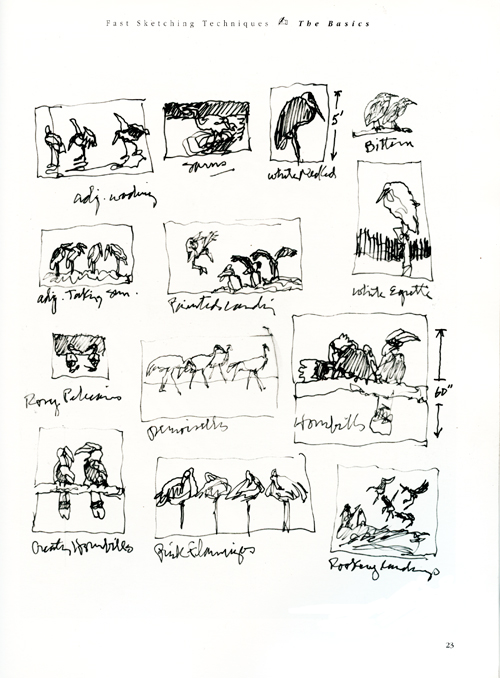 Fast Sketching Techniques The Basics
5'
Bittern
adj. wading
White Necked
White Egrette
adj. Taking
Painteds Landing
Rosy Pelicans
Demoiselles
Hornbills
60"
Hornbills
Pink Flamingos
Roosting Landings
23